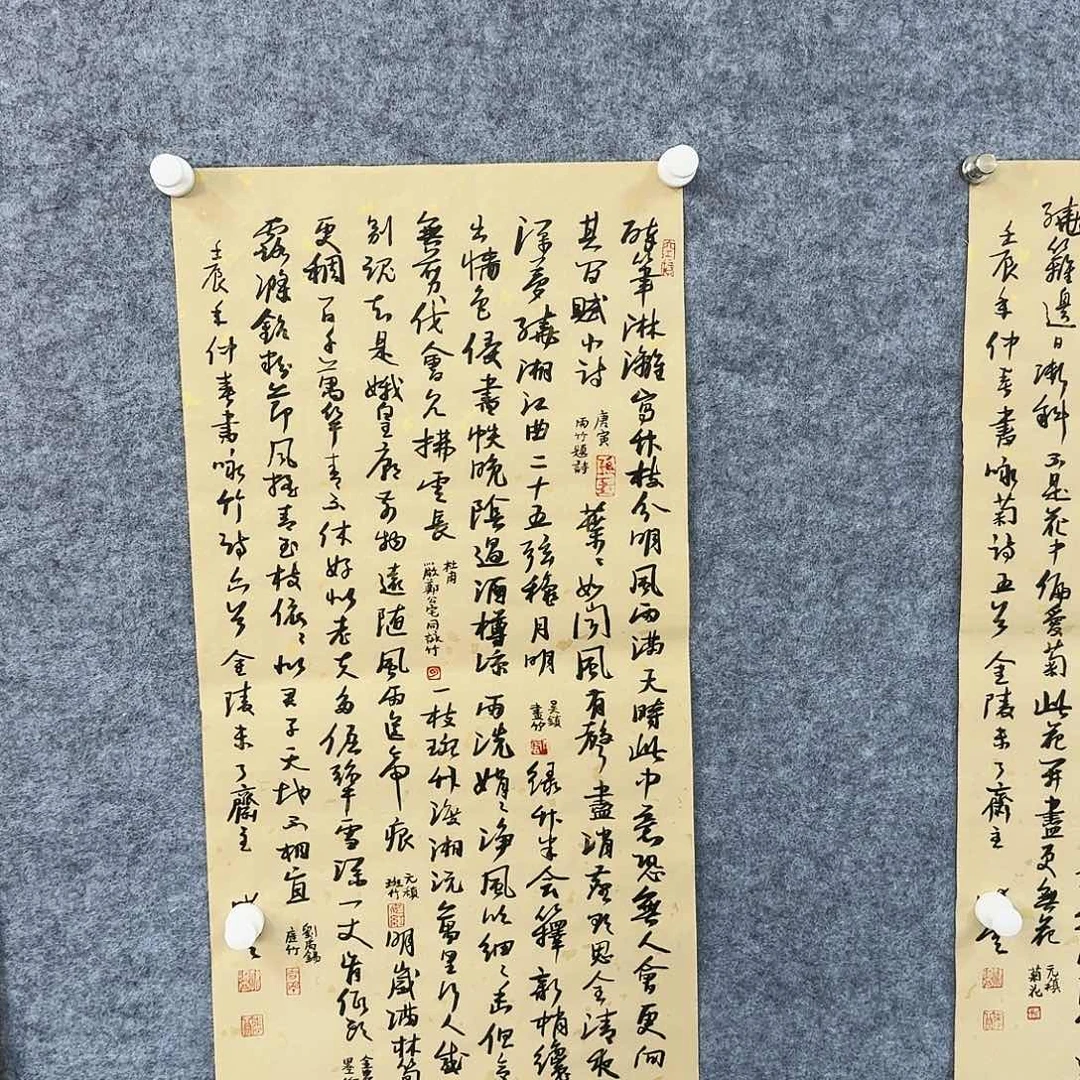 繞籬邊日漸斜不是花中偏愛菊此花開盡更無花
元稹
菊花
壬辰年仲春書咏菊詩五首金陵未了齋主
醉筆淋灕寫竹枝分明風雨滿天時此中意恐無人會更向
其間賦小詩
唐寅
雨竹題詩
葉〻如聞風有聲盡消塵思全清夜
深夢繞湘江曲二十五弦秋月明
吳鎮
畫竹
綠竹半含籜新梢纔
出墻色侵書帙晚陰過酒樽涼雨洗娟〻淨風吹細〻香但令
無剪伐會見拂雲長
杜甫
嚴鄭公宅同詠竹
一枝斑竹渡湘沅萬里行人感
別魂知是娥皇廟前物遠隨風雨送啼痕
元稹
斑竹
明歲滿林筍
更稠百千萬竿青不休好似老夫多倔犟雪深一丈肯低頭
露滌鉛粉節風搖青玉枝依〻似君子天地不相宜
劉禹錫
庭竹
壬辰年仲春書咏竹詩六首金陵未了齋主